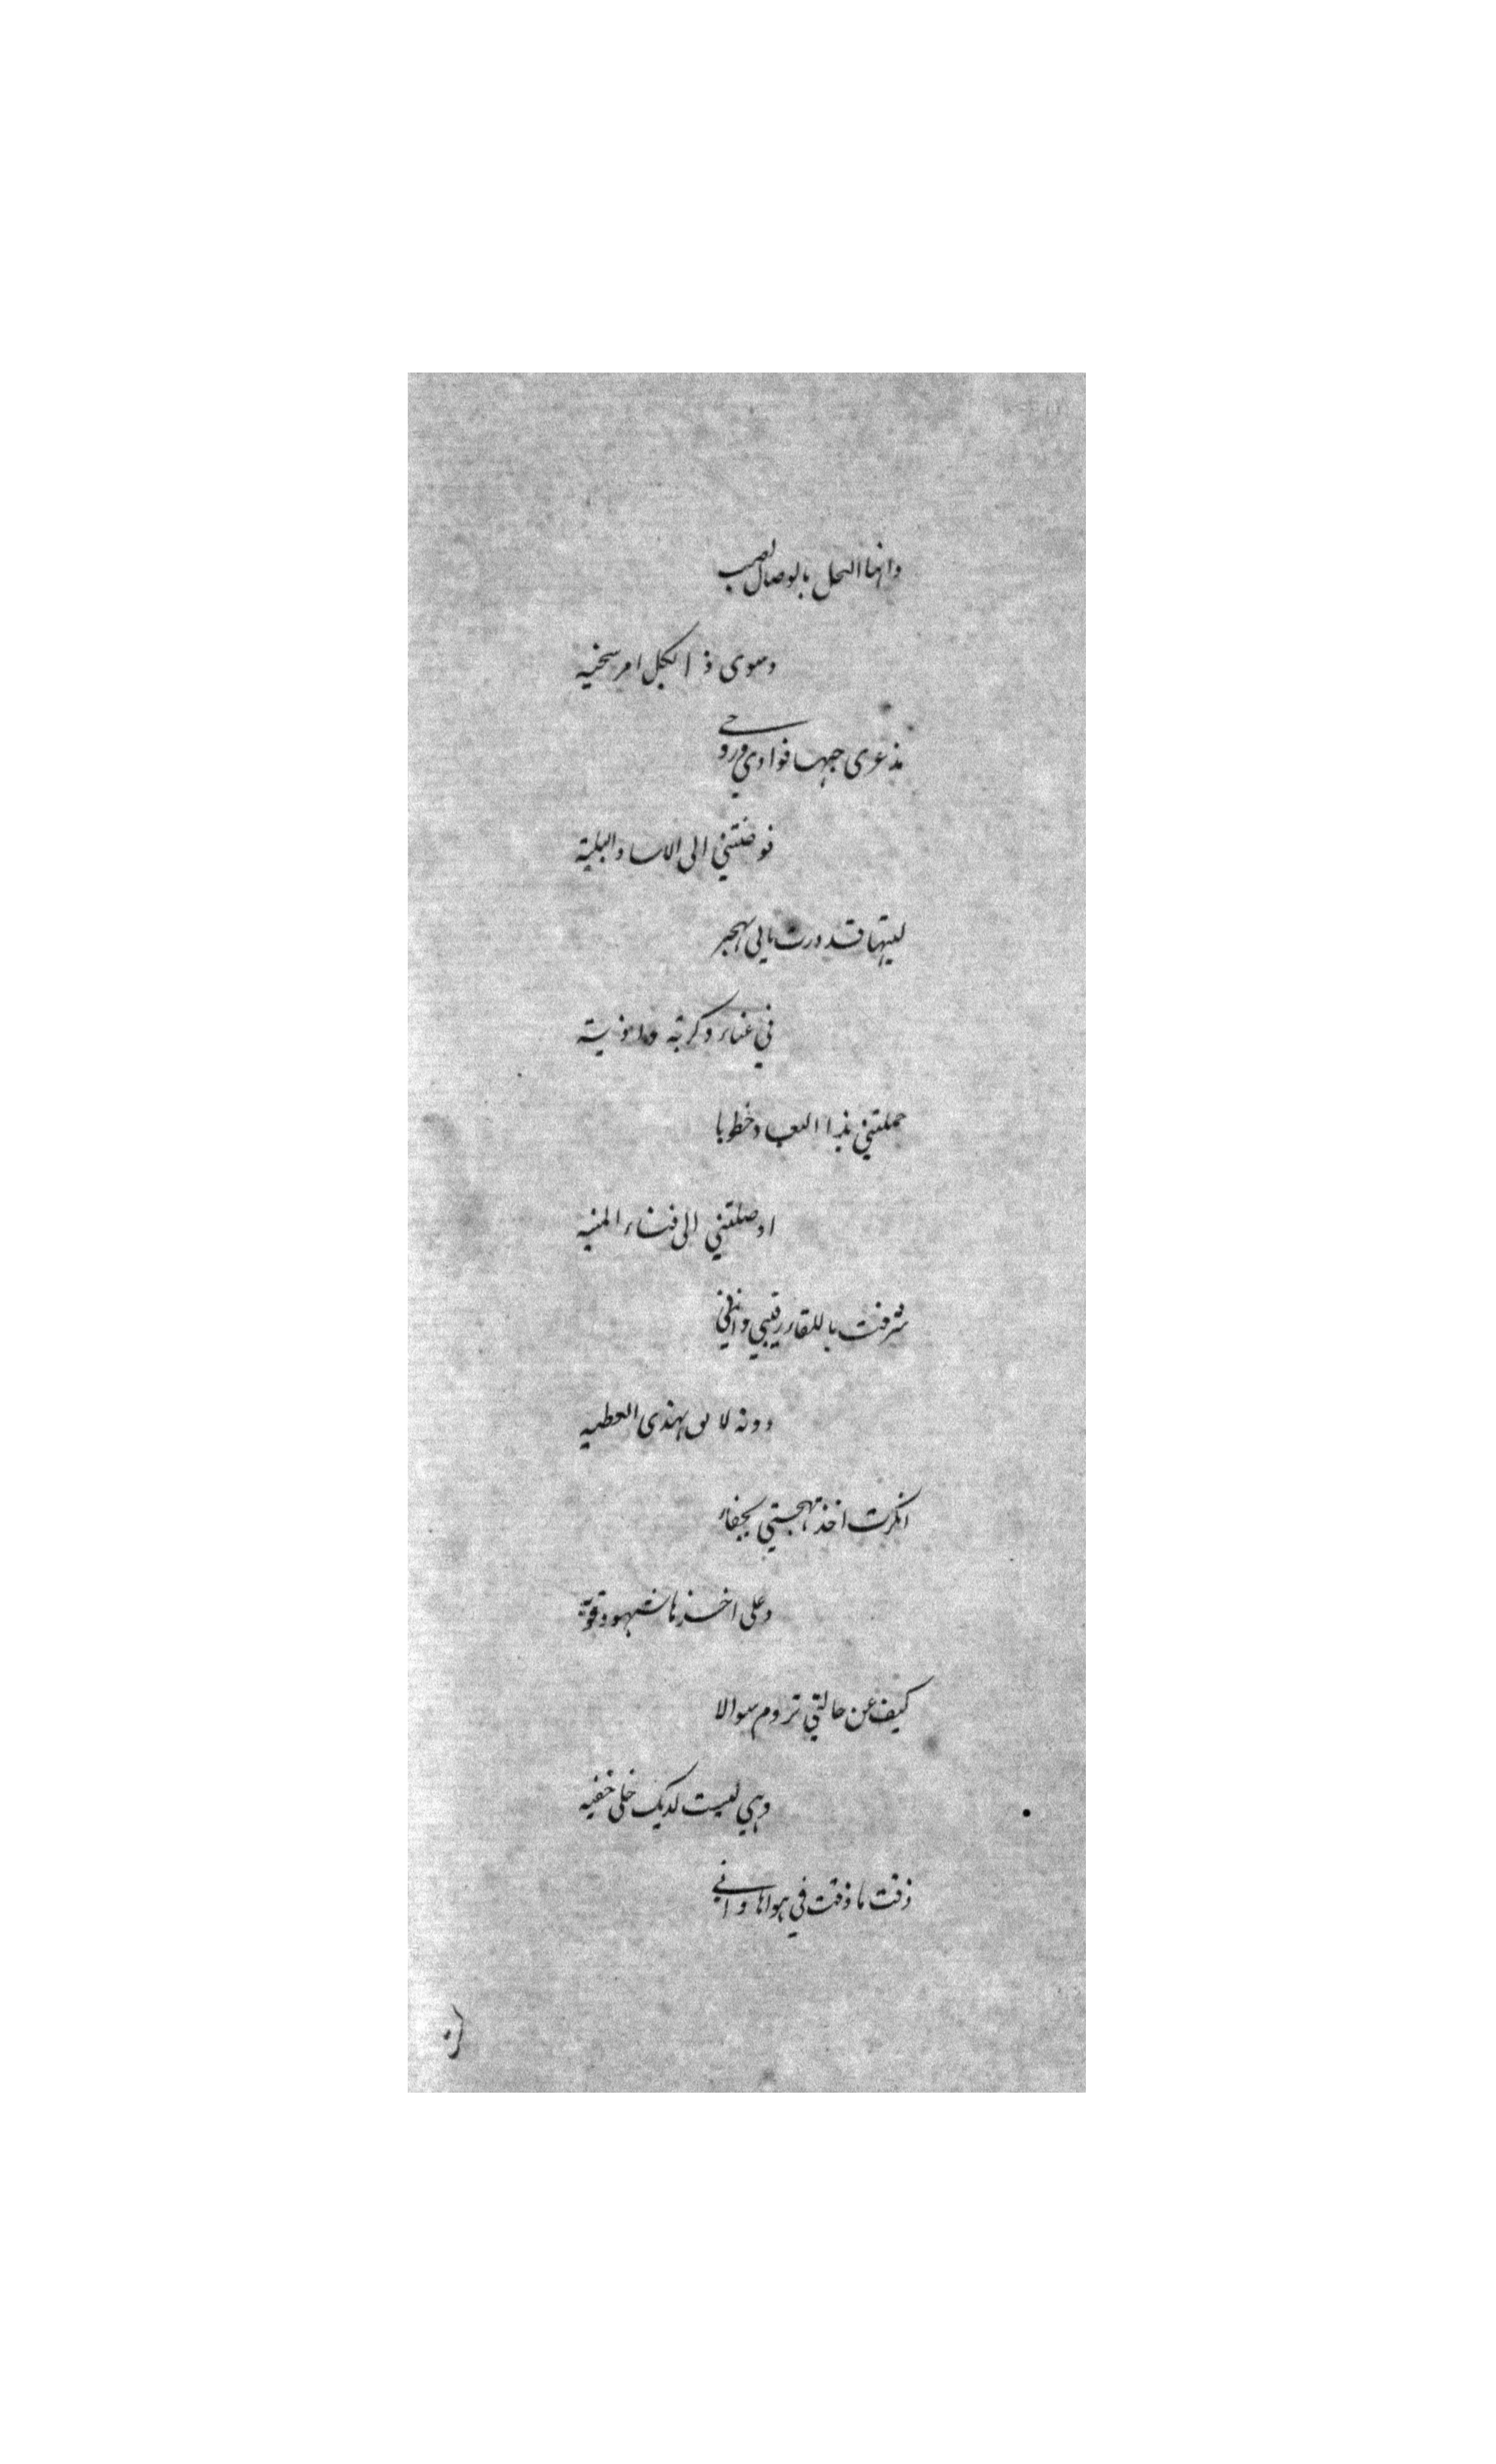 دابها البخل بالوصال لصب
وسوى ذا لكل امر سخيه
مذ عرى حبها فوادي وروحي
فوضتني الى الاسا والبلية
ليتها قد درت بابي الهجر
في عناء وكربة واذية
حملتني بذا البعاد خطوبا
اوصلتني الى فناء المنيه
شرفت باللقاء رقيبي واني
دونه لايق لهذى العطيه
انكرت اخذ مهجتي بجفاء
وعلى اخذها شهود قوية
كيف عن حالتي تروم سوالا
وهي ليست لديك خلي خفيه
ذقت ما ذقت في هواها واني